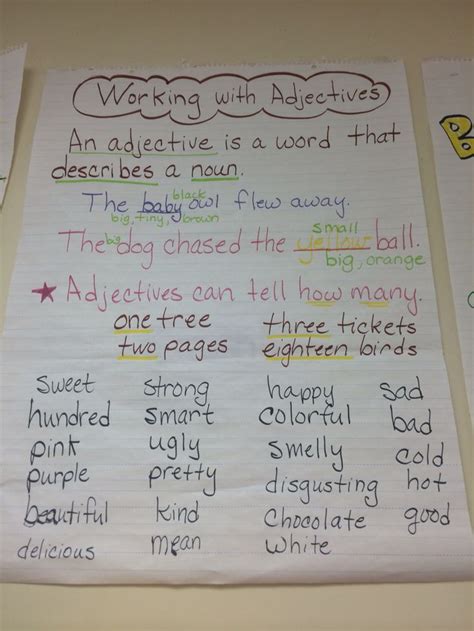 Working with Adjectives
An adjective is a word that
describes a noun.
black
The baby owl flew away.
big, tiny, brown
small
The big dog chased the yellow ball.
big, orange
★ Adjectives can tell how many.
one tree three tickets
two pages eighteen birds
sweet strong happy sad
hundred smart colorful bad
pink ugly smelly cold
purple pretty disgusting hot
beautiful kind chocolate good
delicious mean white
B